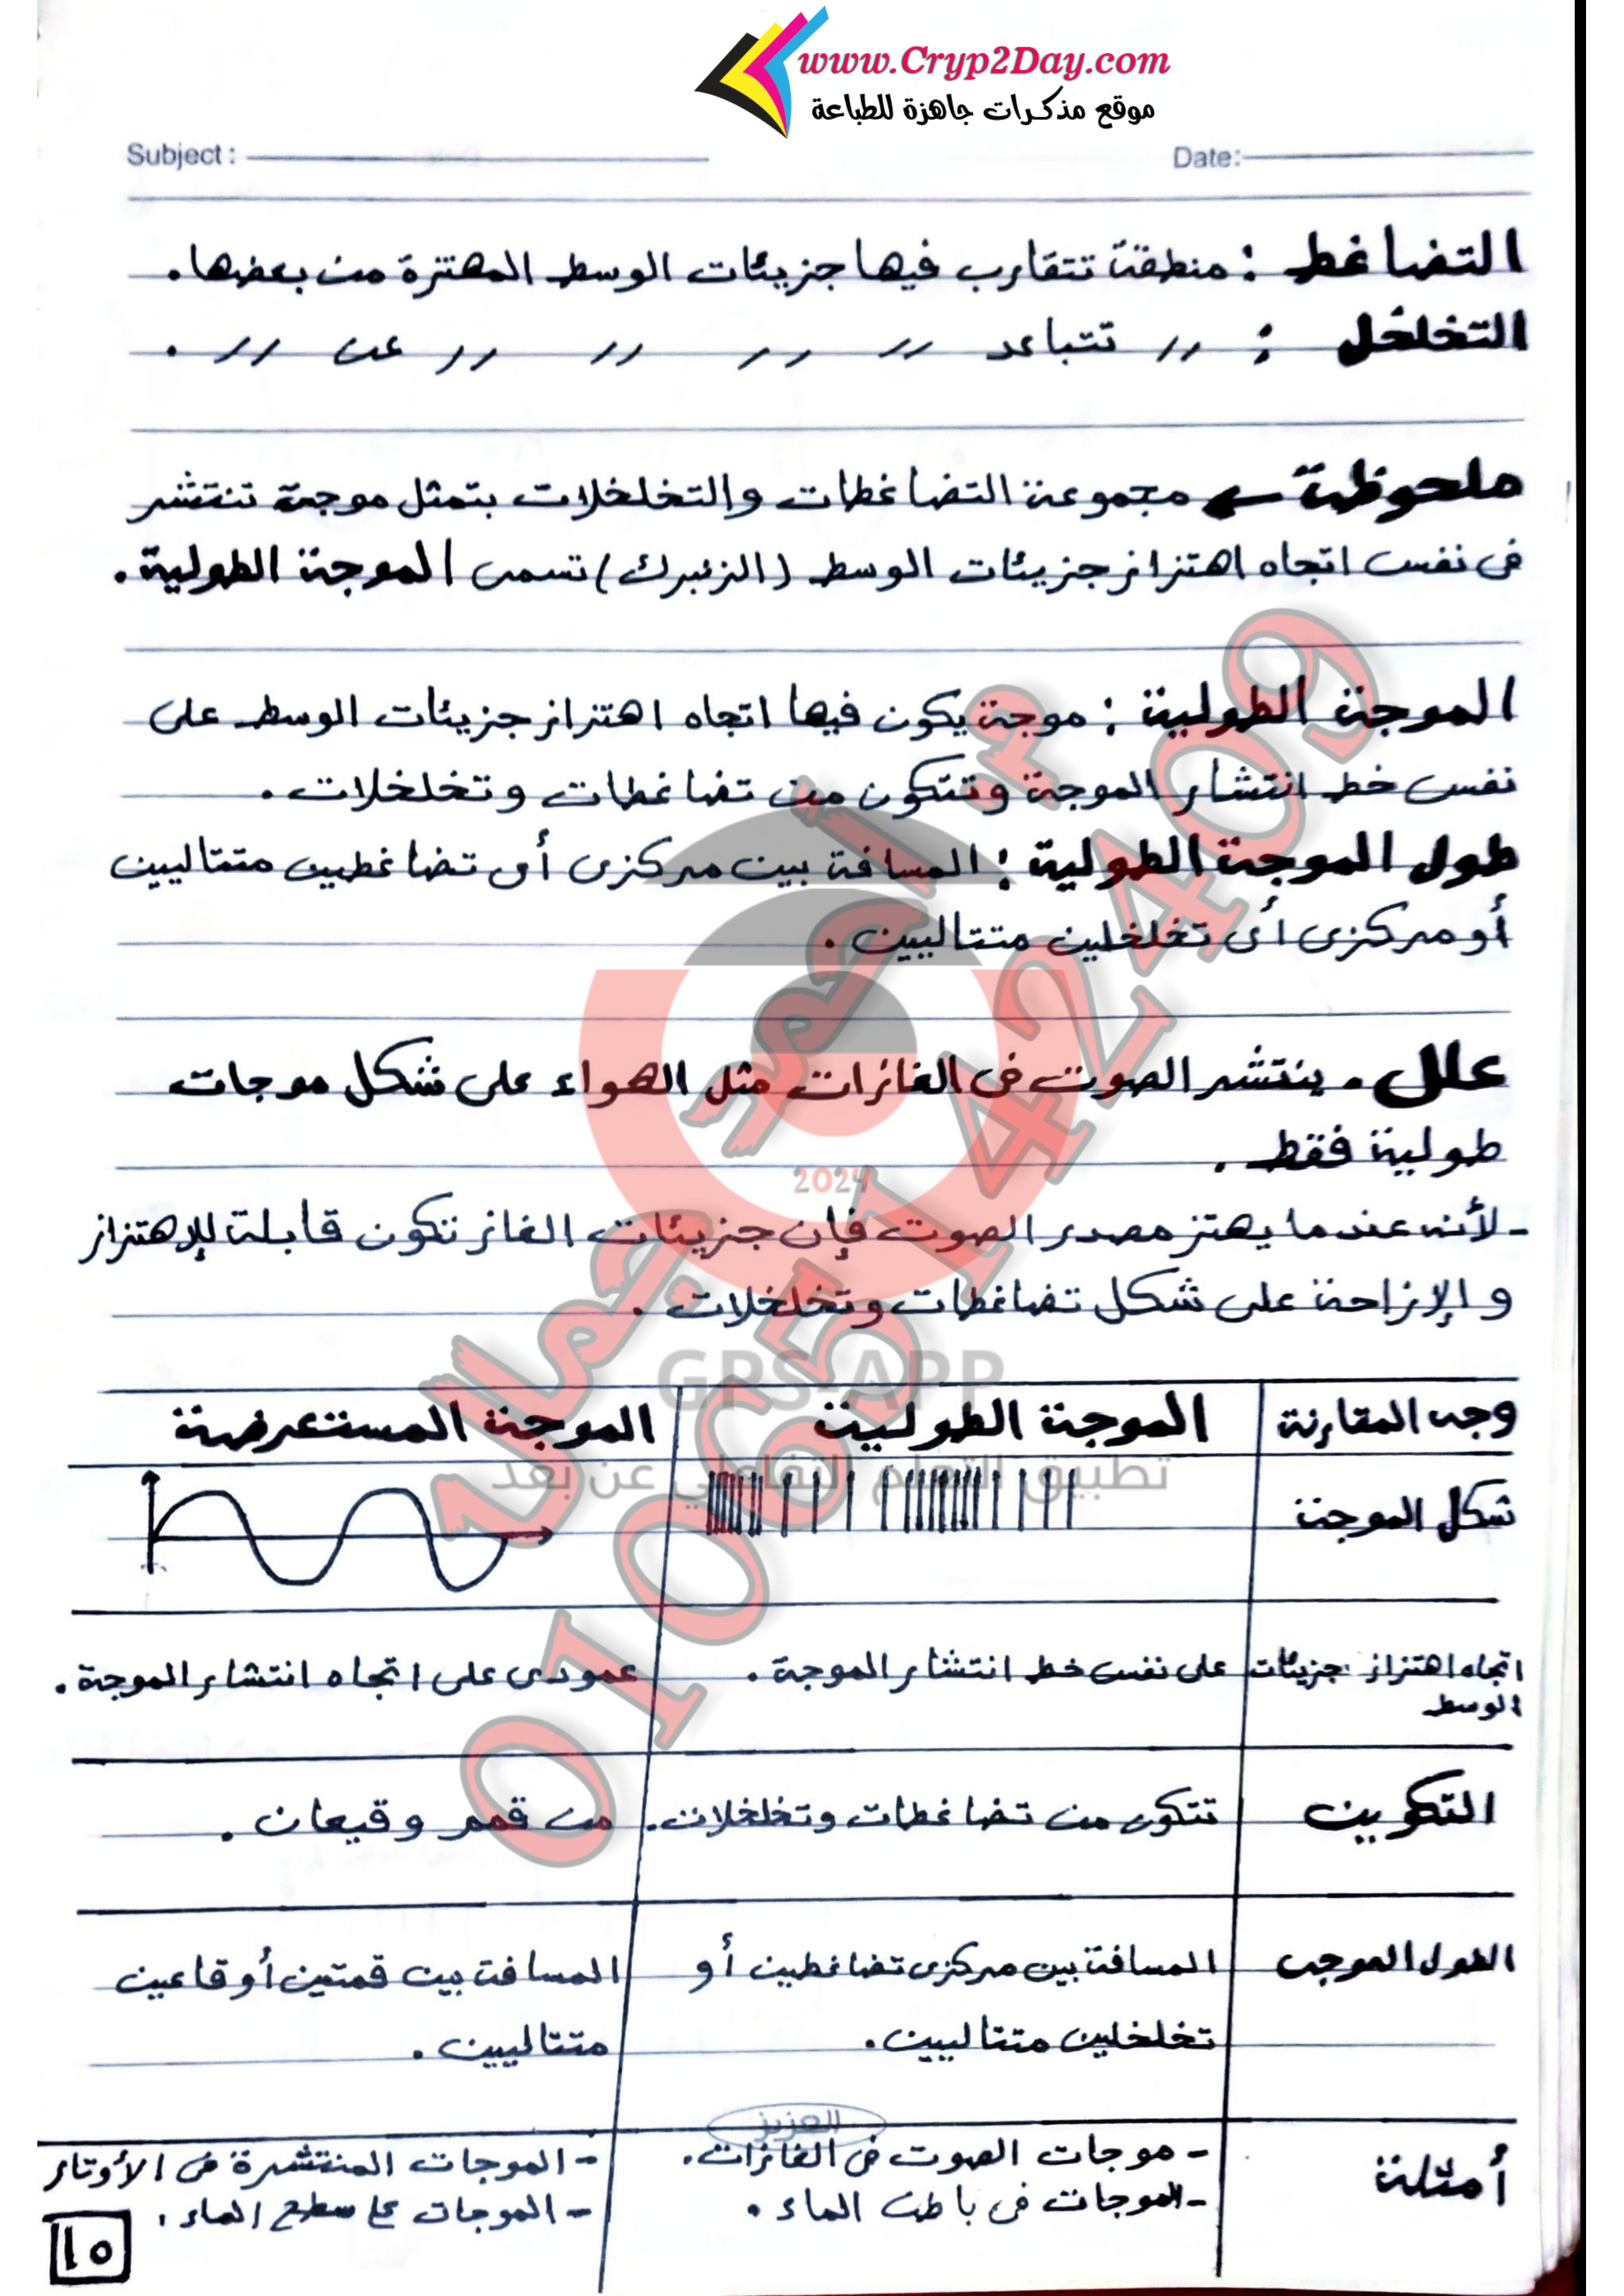 www.Cryp2Day.com
موقع مذكرات جاهزة للطباعة
Subject :
Date:
التضاغط : منطقة تتقارب فيها جزيئات الوسط المهتزة من بعضها.
التخلخل : // تتباعد // // // // عن // .
ملحوظة ← مجموعة التضاغطات والتخلخلات بتمثل موجة تنتشر
فى نفس اتجاه اهتزاز جزيئات الوسط (الزنبرك) تسمى الموجة الطولية.
الموجة الطولية : موجة يكون فيها اتجاه اهتزاز جزيئات الوسط على
نفس خط انتشار الموجة وتتكون من تضاغطات وتخلخلات.
طول الموجة الطولية : المسافة بين مركزى أى تضاغطين متتاليين
أو مركزى أى تخلخلين متتاليين.
علل. ينتشر الصوت فى الغازات مثل الهواء على شكل موجات
طولية فقط.
- لأنه عندما يهتز مصدر الصوت فإن جزيئات الغاز تكون قابلة للإهتزاز
و الإزاحة على شكل تضاغطات وتخلخلات.
2024
GPS-APP
تطبيق التعلم التفاعلي عن بعد
01065142409
وجه المقارنة الموجة الطولية الموجة المستعرضة
شكل الموجة
اتجاه اهتزاز جزيئات على نفس خط انتشار الموجة. عمودى على اتجاه انتشار الموجة.
الوسط
التكوين تتكون من تضاغطات وتخلخلات. من قمم وقيعان.
الطول الموجى المسافة بين مركزى تضاغطين أو المسافة بين قمتين أو قاعين
تخلخلين متتاليين. متتاليين.
العزيز
أمثلة - موجات الصوت فى الغازات. - الموجات المنتشرة فى الأوتار
- الموجات فى باطن الماء. - الموجات على سطح الماء.
١٥